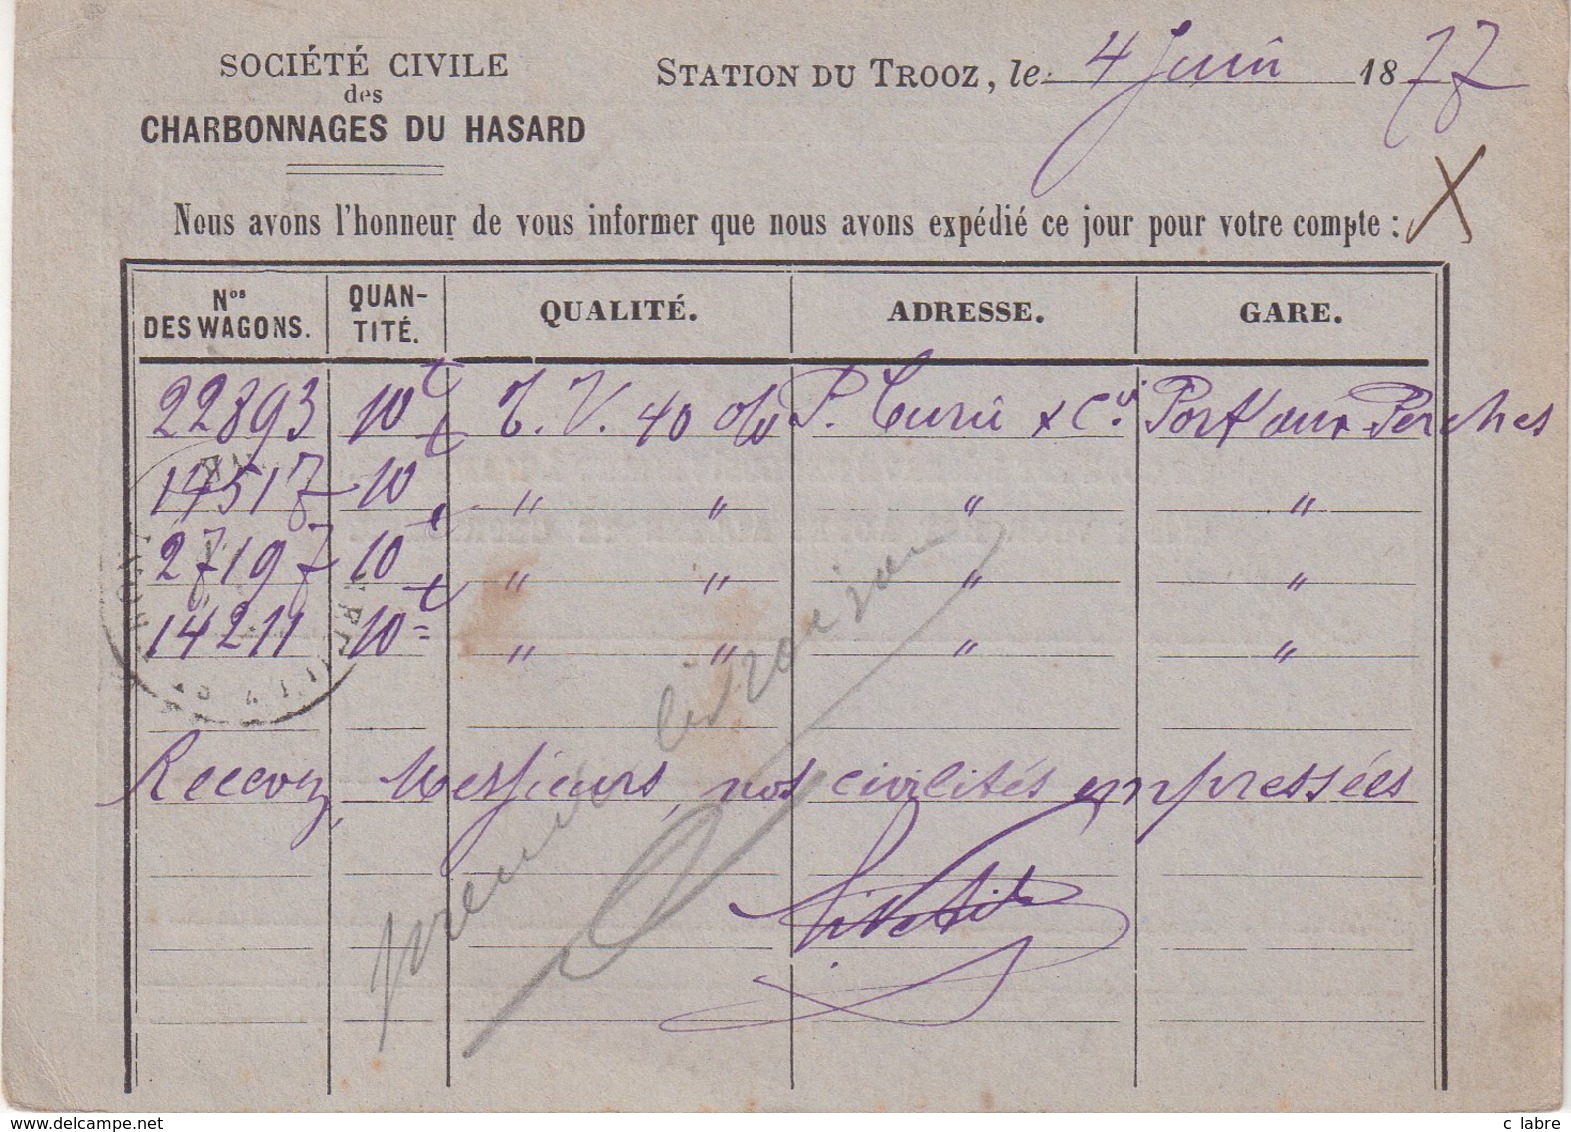 SOCIÉTÉ CIVILE
des
CHARBONNAGES DU HASARD
STATION DU TROOZ, le 4 Juin 1877
X
Nous avons l'honneur de vous informer que nous avons expédié ce jour pour votre compte :
Nos DES WAGONS. QUAN-TITÉ. QUALITÉ. ADRESSE. GARE.
22893 10t T. V. 40 o/o P. & Cie Port aux Perches
14517 10t " " " "
27197 10t " " " "
14211 10t " " " "
Recevez, Messieurs, nos civilités empressées
livraison
www.delcampe.net
c labre